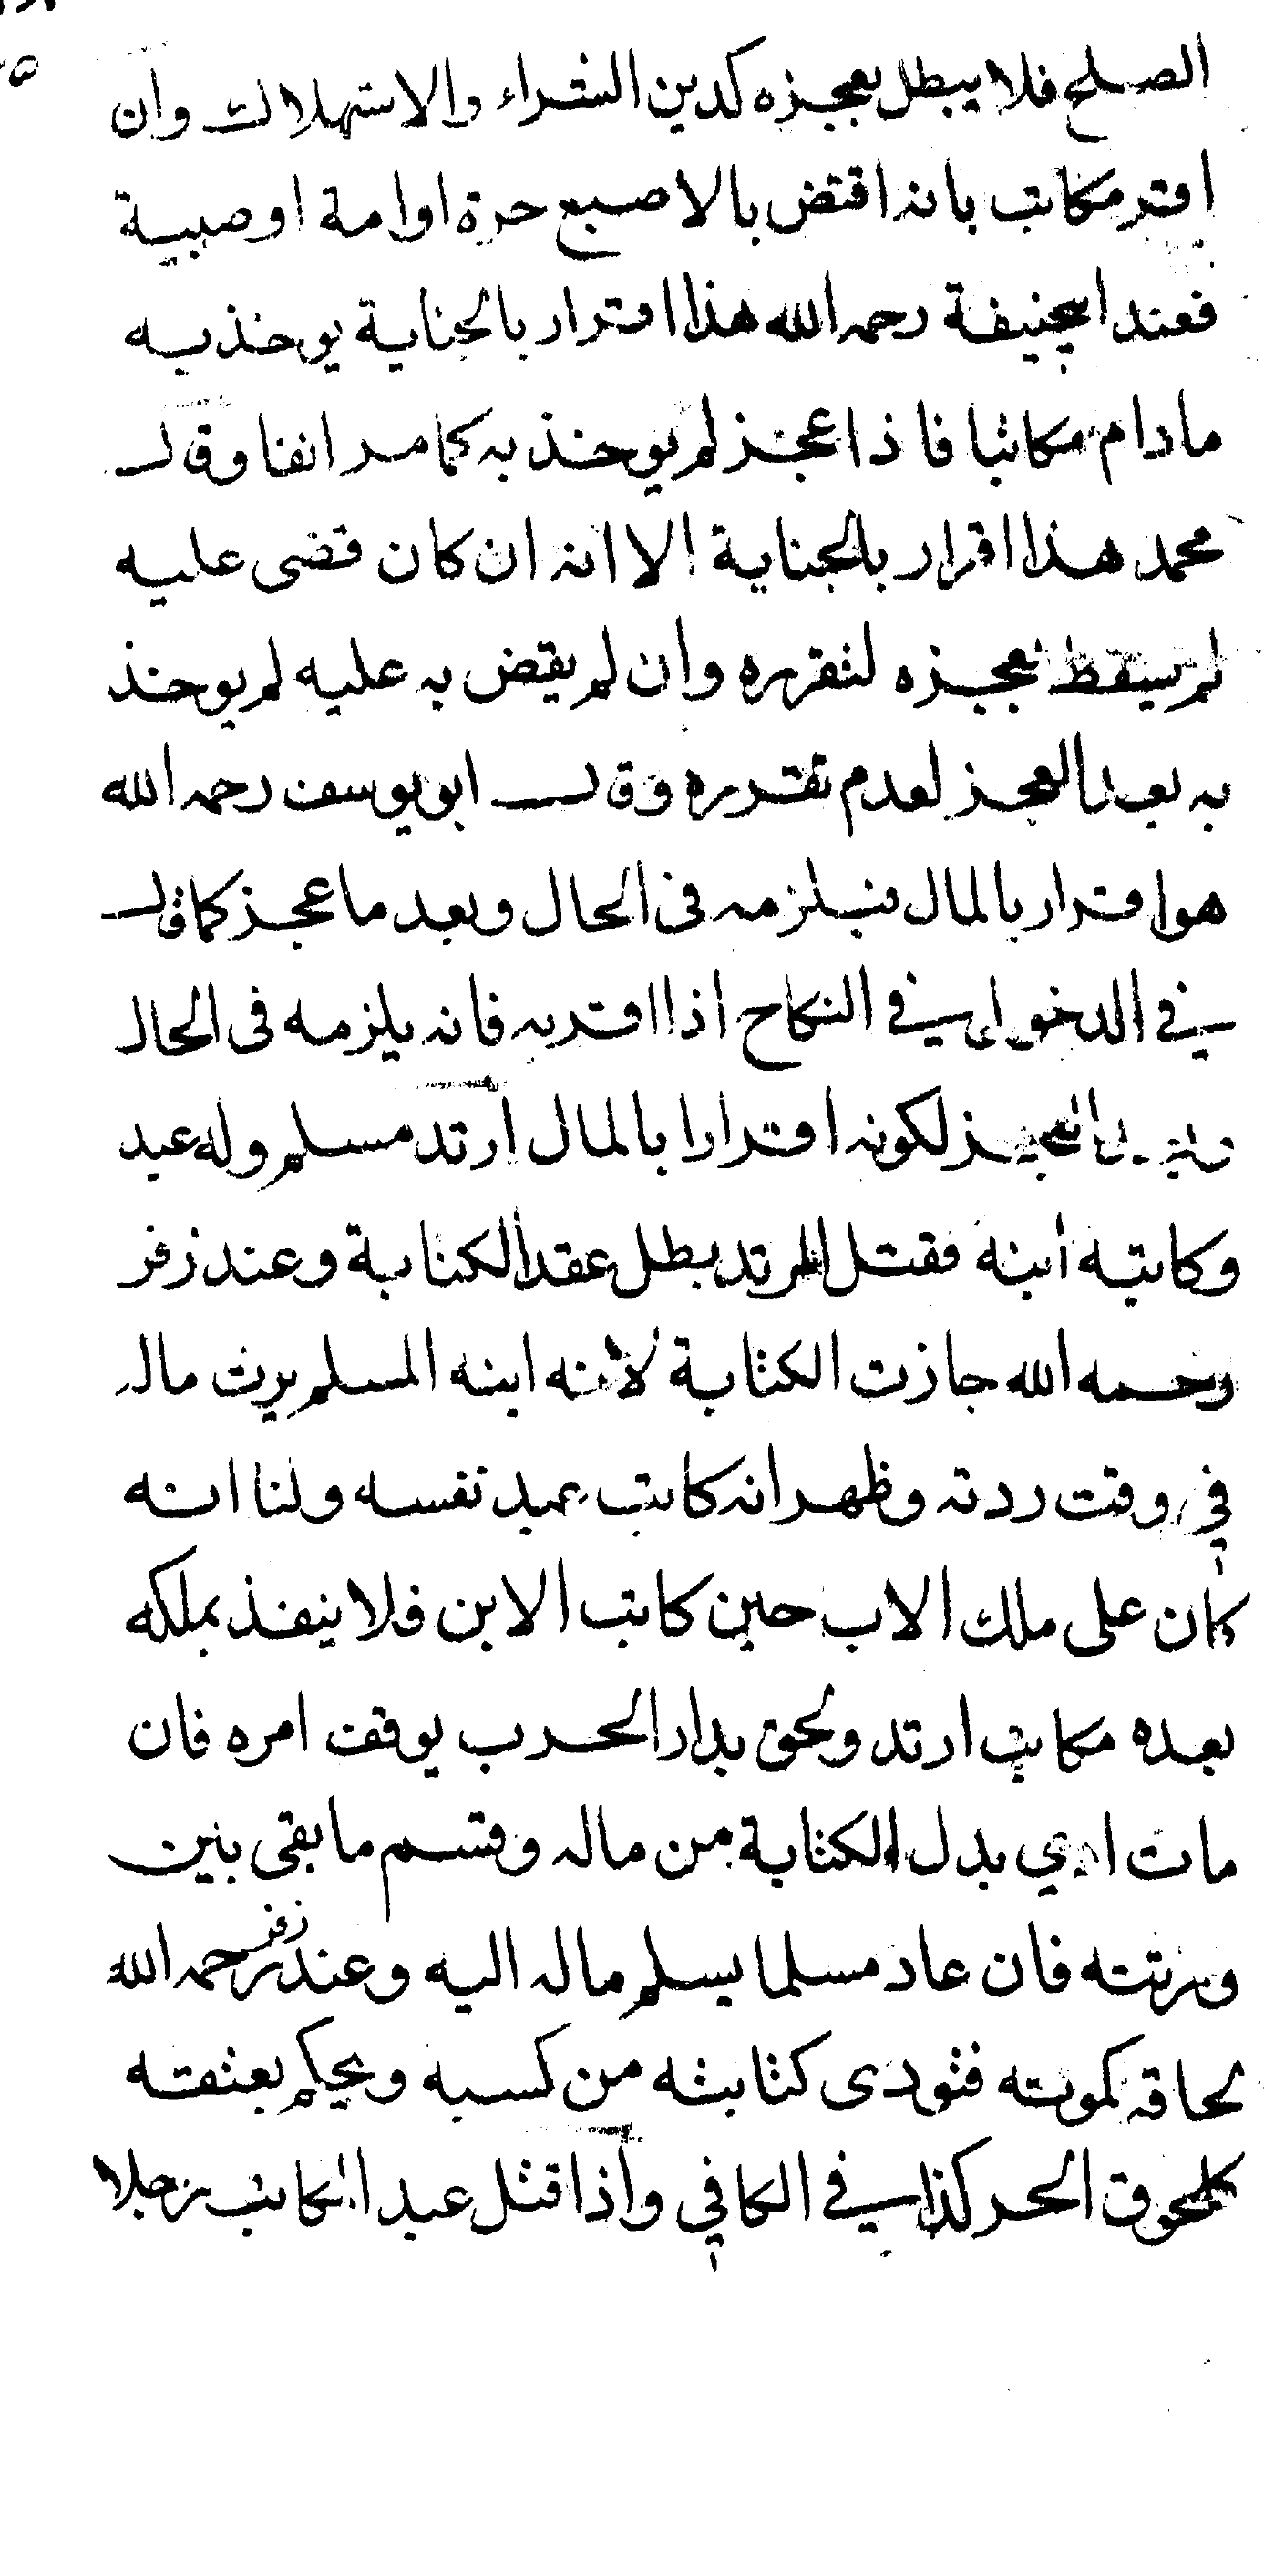 الصلح فلا يبطل بعجزه كدين الشراء والاستهلاك وان
اقر مكاتب بانه اقتض بالاصبع حرة او امة او صبية
فعند ابيحنيفة رحمه الله هذا اقرار بالجناية يوخذ به
مادام مكاتبا فاذا عجز لم يوخذ به كما مر انفا وقال
محمد هذا اقرار بالجناية الا انه ان كان قضى عليه
لم يسقط بعجزه لتقرره وان لم يقض به عليه لم يوخذ
به بعد العجز لعدم تقرره وقال ابو يوسف رحمه الله
هو اقرار بالمال فيلزمه فى الحال وبعد ما عجز كما قال
في الدخول في النكاح اذا اقر به فانه يلزمه فى الحال
العجز لكونه اقرارا بالمال ارتد مسلم وله عبد
وكاتبه ابنه فقتل المرتد بطل عقد الكتابة وعند زفر
رحمه الله جازت الكتابة لانه ابنه المسلم يرث ماله
في وقت ردته وظهر انه كاتب عبد نفسه ولنا انه
كان على ملك الاب حين كاتب الابن فلا ينفذ بملكه
بعده مكاتب ارتد ولحق بدار الحرب يوقف امره فان
مات ادي بدل الكتابة من ماله وقسم ما بقى بين
ورثته فان عاد مسلما يسلم ماله اليه وعند زفر رحمه الله
لحاقه كموته فتودى كتابته من كسبه ويحكم بعتقه
كلحوق الحر كذا في الكافي واذا قتل عبد المكاتب رجلا